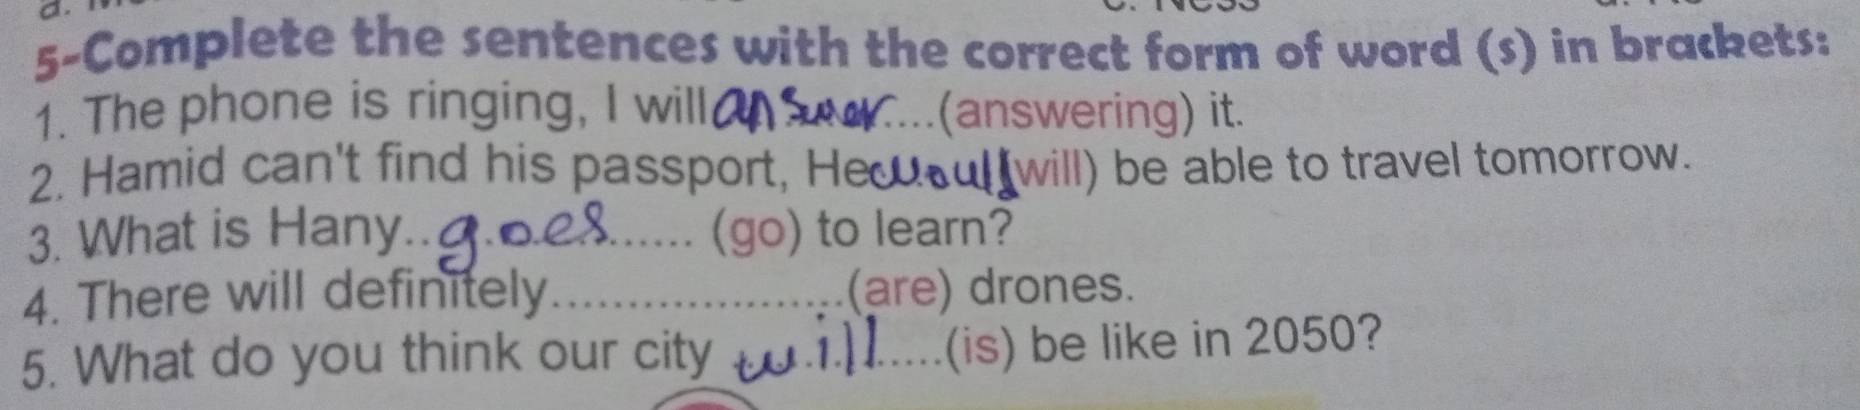 5-Complete the sentences with the correct form of word (s) in brackets:
1. The phone is ringing, I will answer....(answering) it.
2. Hamid can't find his passport, He would (will) be able to travel tomorrow.
3. What is Hany..goes...... (go) to learn?
4. There will definitely.....................(are) drones.
5. What do you think our city will.....(is) be like in 2050?